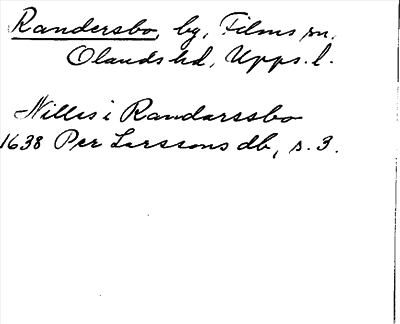 Randersbo, by, Films sn,
Olands hd, Upps. l.
Nills i Randarssbo
1638 Per Larssons db, s. 3.